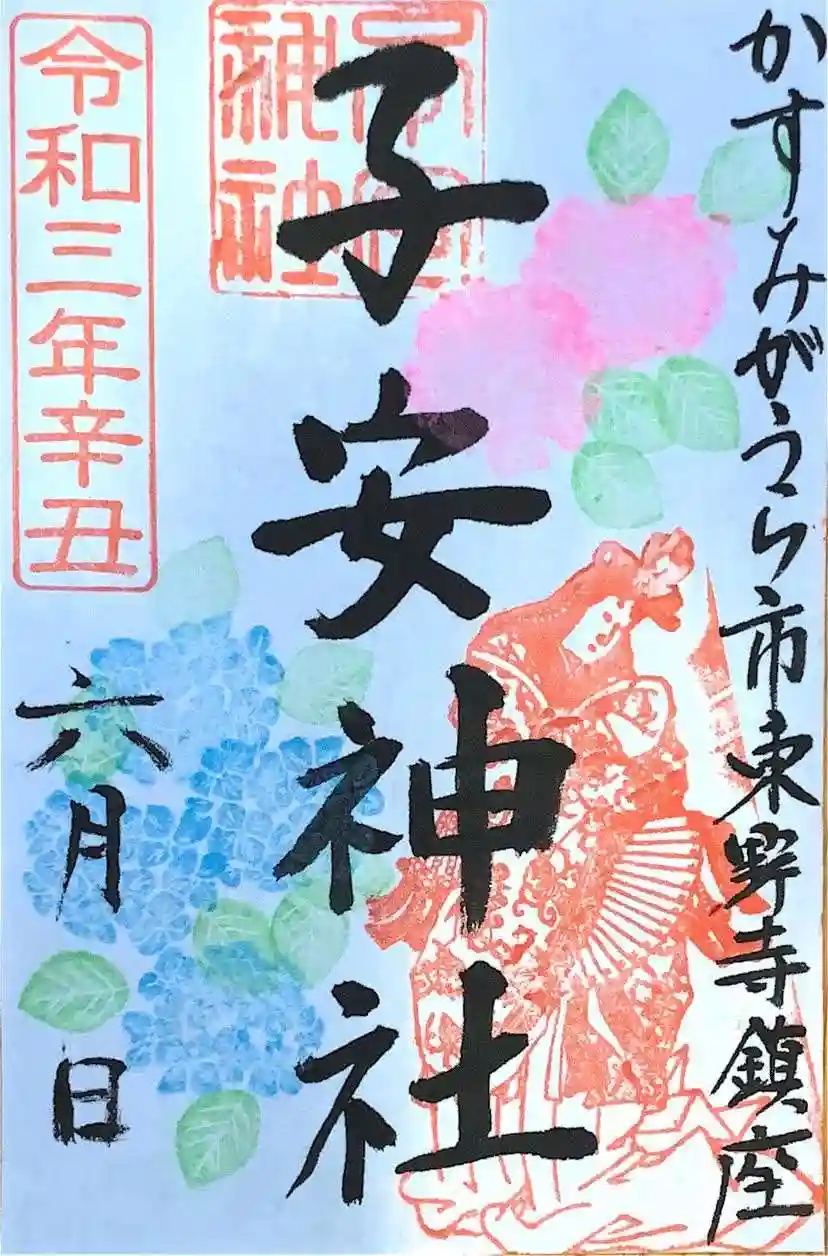 かすみがうら市東野寺鎮座
子安神社
子安神社
令和三年辛丑
六月 日